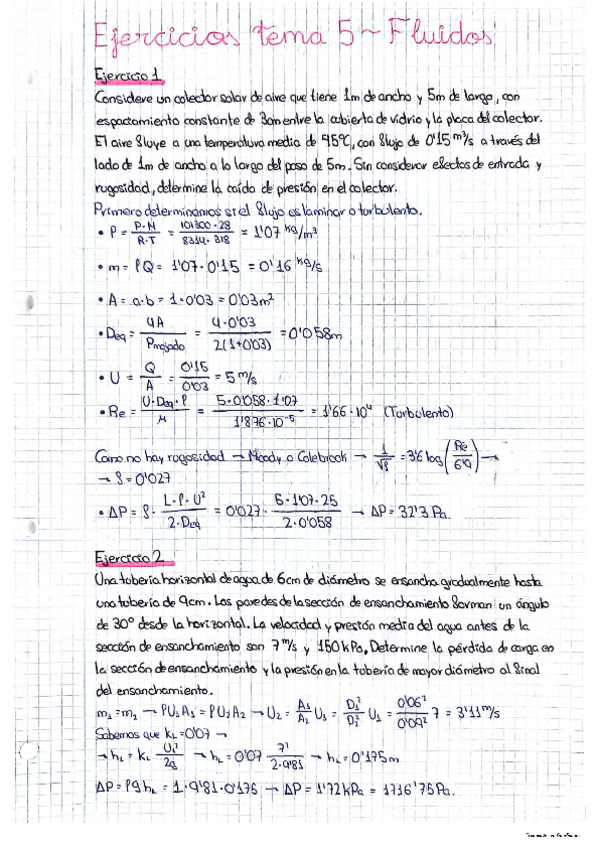 Ejercicios tema 5 ~ Fluidos
Ejercicio 1
Considere un colector solar de aire que tiene 1m de ancho y 5m de largo, con
espaciamiento constante de 3cm entre la cubierta de vidrio y la placa del colector.
El aire fluye a una temperatura media de 45ºC, con flujo de 0'15 m³/s a través del
lado de 1m de ancho a lo largo del paso de 5m. Sin considerar efectos de entrada y
rugosidad, determine la caída de presión en el colector.
Primero determinamos si el flujo es laminar o turbulento.
• ρ = P·M / R·T = 101300·28 / 8314·318 = 1'07 kg/m³
• m = ρQ = 1'07·0'15 = 0'16 kg/s
• A = a·b = 1·0'03 = 0'03m²
• Deq = 4A / Pmojado = 4·0'03 / 2(1+0'03) = 0'058m
• U = Q / A = 0'15 / 0'03 = 5 m/s
• Re = U·Deq·ρ / μ = 5·0'058·1'07 / 1'876·10⁻⁵ = 1'66·10⁴ (Turbulento)
Como no hay rugosidad → Moody o Colebrook → 1/√f = 3'6 log(Re/6'9) →
→ f = 0'027
• ΔP = f · L·ρ·U² / 2·Deq = 0'027 · 5·1'07·25 / 2·0'058 → ΔP = 32'3 Pa.
Ejercicio 2
Una tubería horizontal de agua de 6cm de diámetro se ensancha gradualmente hasta
una tubería de 9cm. Las paredes de la sección de ensanchamiento forman un ángulo
de 30º desde la horizontal. La velocidad y presión media del agua antes de la
sección de ensanchamiento son 7 m/s y 150 kPa. Determine la pérdida de carga en
la sección de ensanchamiento y la presión en la tubería de mayor diámetro al final
del ensanchamiento.
m₁ = m₂ → ρU₁A₁ = ρU₂A₂ → U₂ = A₁/A₂ U₁ = D₁²/D₂² U₁ = 0'06²/0'09² 7 = 3'11 m/s
Sabemos que kL = 0'07 →
→ hL = kL U₁²/2g → hL = 0'07 7²/2·9'81 → hL = 0'175m
ΔP = ρg hL = 1·9'81·0'175 → ΔP = 1'72 kPa = 1716'75 Pa.